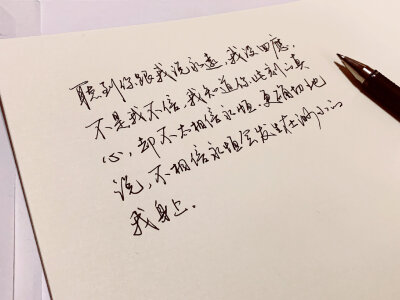 聽到你跟我说永遠,我没回應.
不是我不信,我知道你此刻的真
心,却不太相信永恒.更確切地
说,不相信永恒会发生在渺小的
我身上.